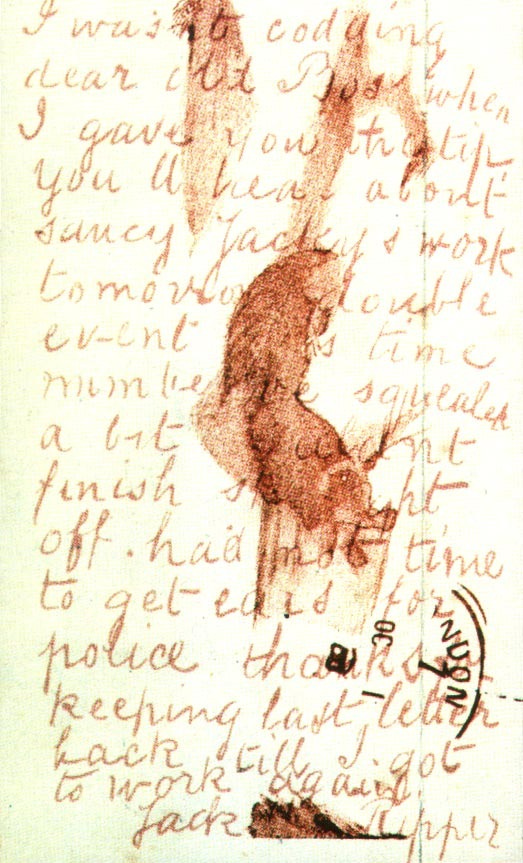 I was not codding
dear old Boss when
I gave you the tip,
you'll hear about
saucy Jacky s work
tomorrow double
event time
number squealed
a bit
finish
off. had not time
to get ears for
police thanks for
keeping last letter
back till I got
to work again
Jack Ripper
30